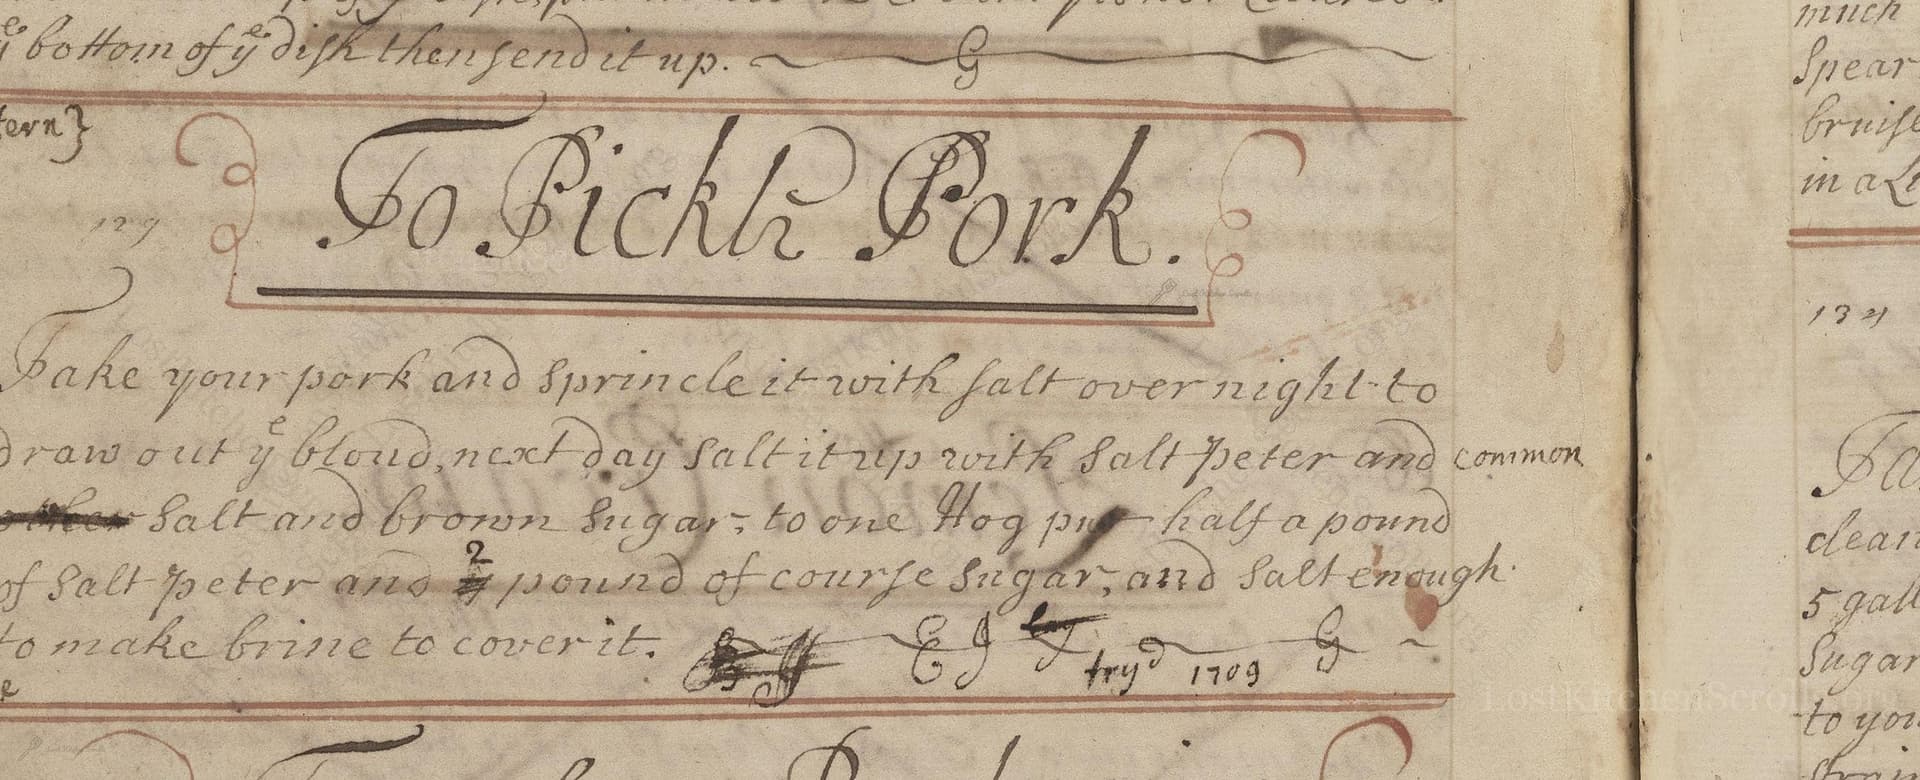 yᵉ bottom of yᵉ dish then send it up. G
tern}
129
To Pickle Pork.
Take your pork and sprincle it with salt over night to
draw out yᵉ bloud, next day salt it up with salt peter and common
salt and brown sugar; to one Hog put half a pound
of salt peter and 2 pound of course sugar, and salt enough
to make brine to cover it. E J G
tryd 1709
much
spear
bruise
in a Li
134
Ta
clean
5 gall
sugar
to you
strain
LostKitchenScrolls